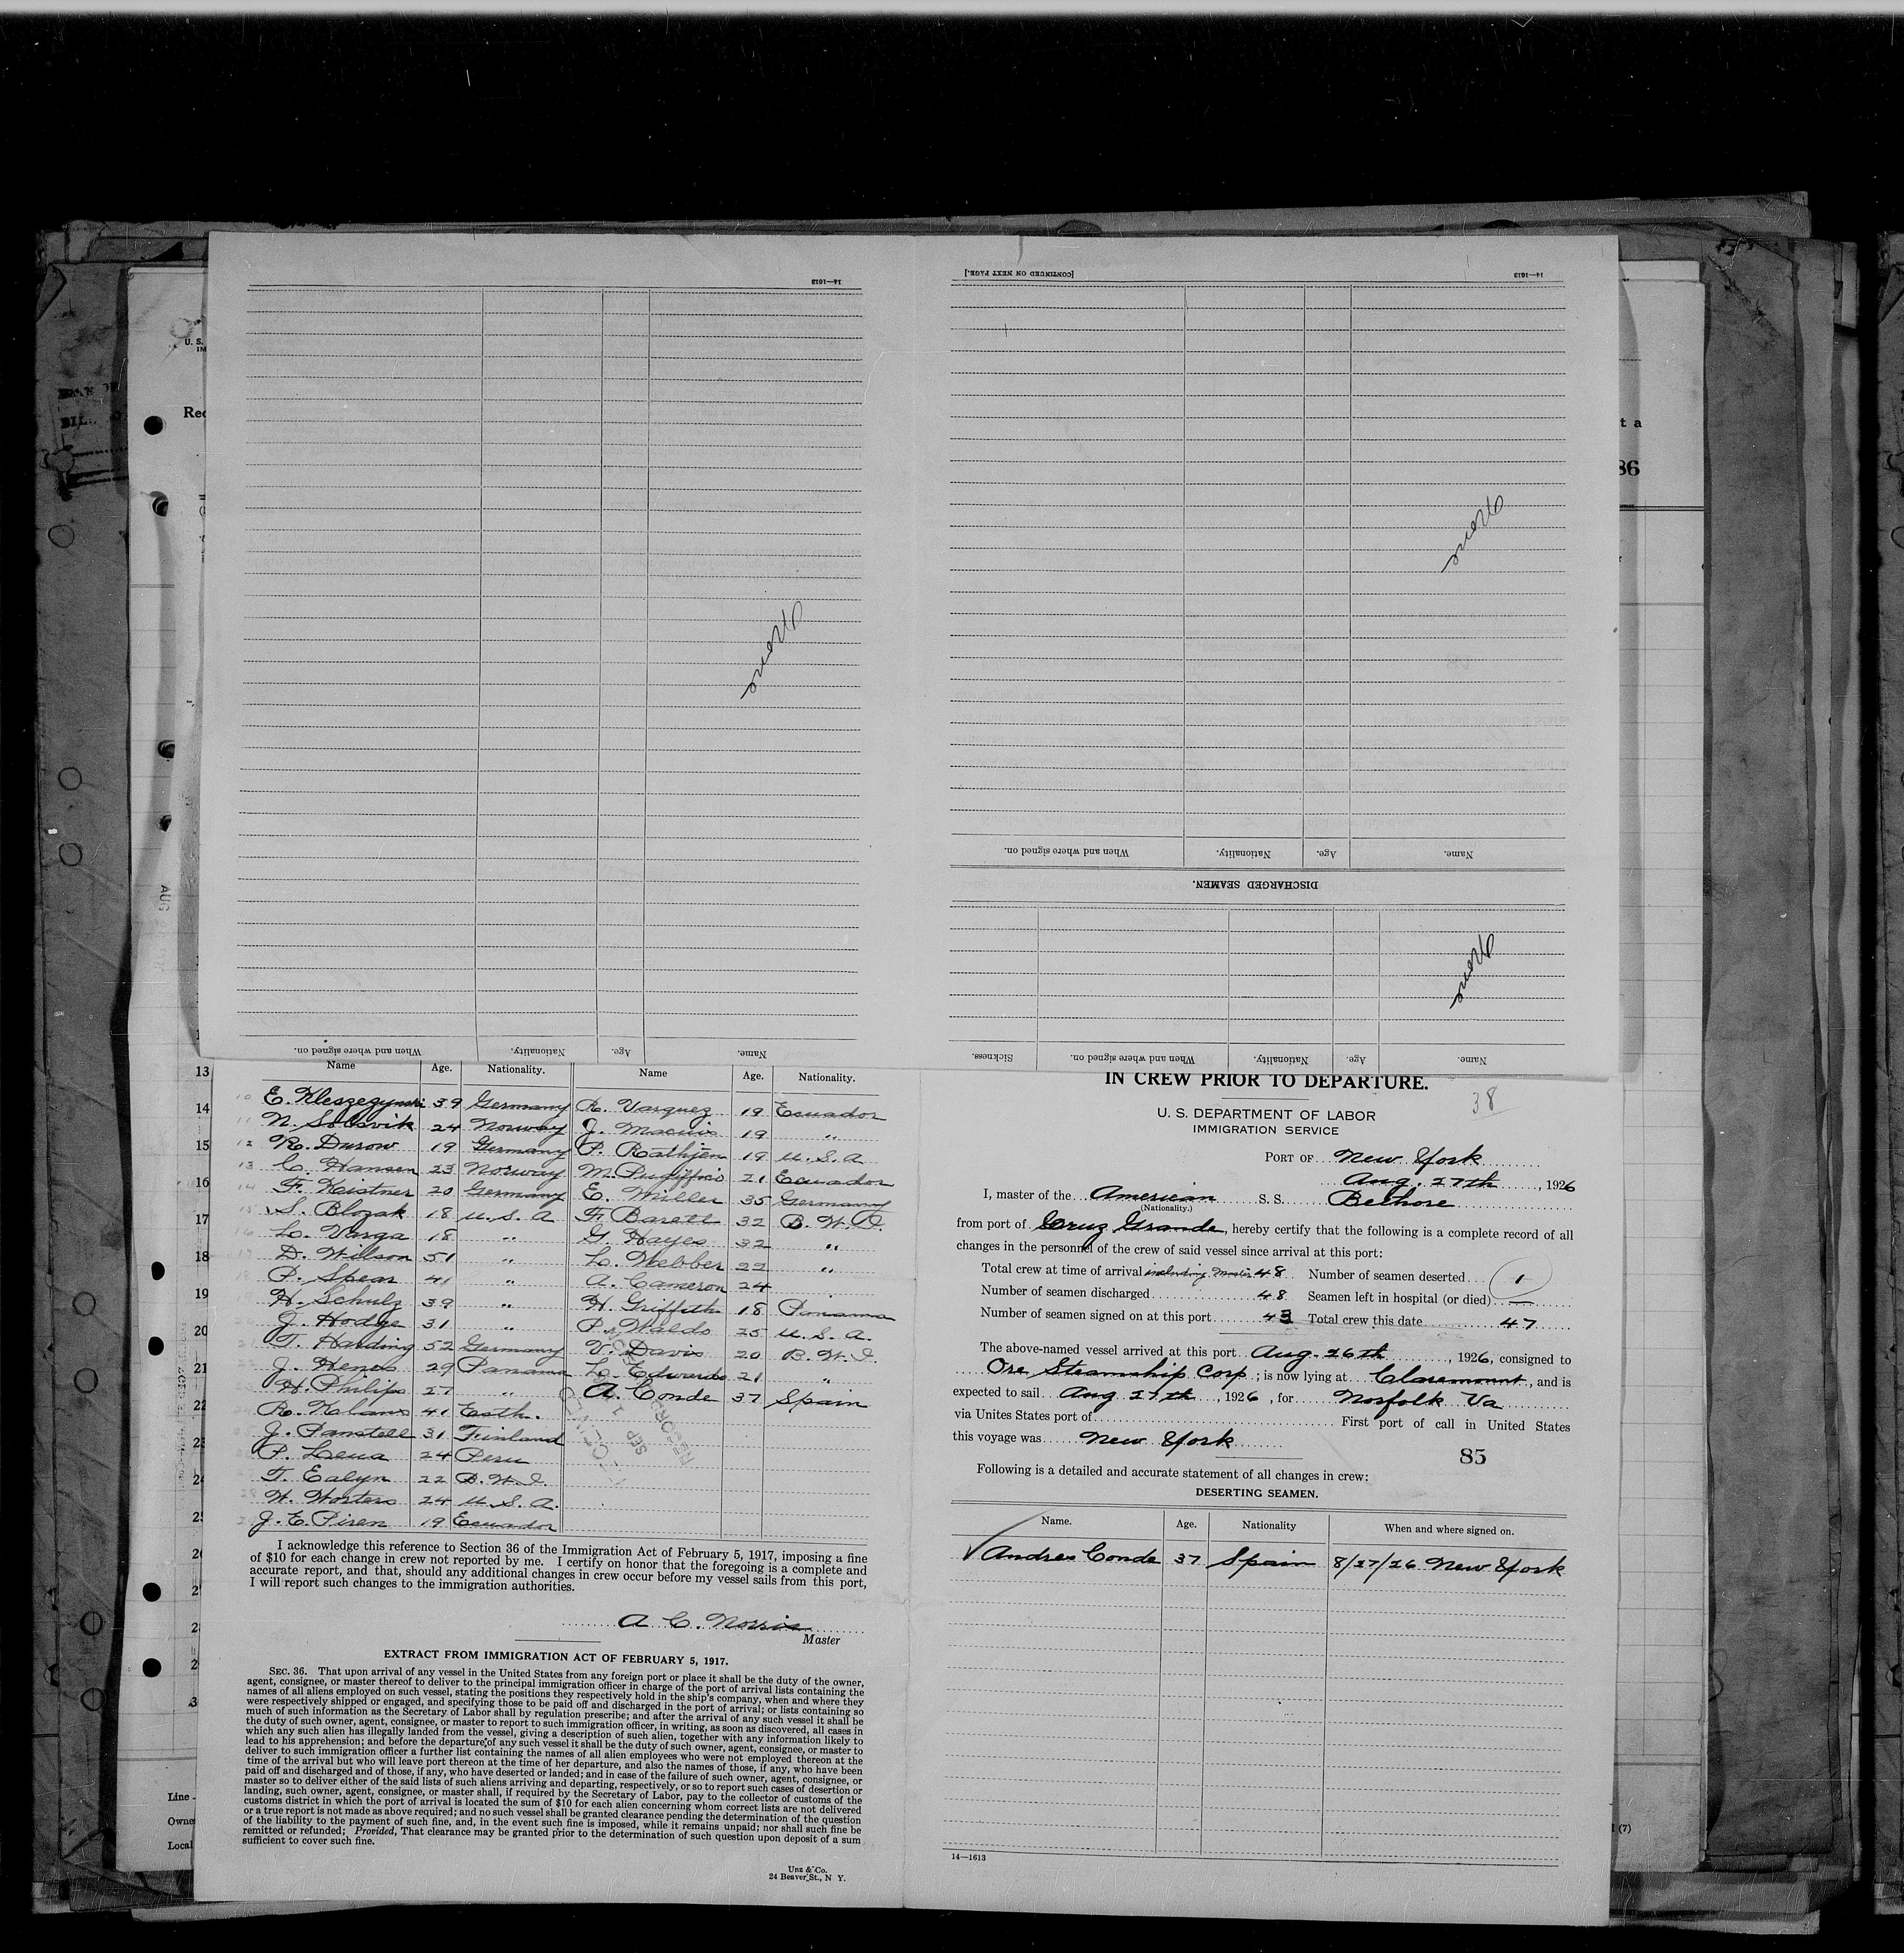 [CONTINUED ON NEXT PAGE.]
14—1613
14—1613
None
None
When and where signed on.
Nationality.
Age.
Name.
DISCHARGED SEAMEN.
None
Sickness.
When and where signed on.
Nationality.
Age.
Name.
When and where signed on.
Nationality.
Age.
Name.
U. S.
IM
Rec
t a
86
AUG
13
14
15
16
17
18
19
20
21
22
23
24
25
26
Line
Owne
Local
(7)
Name Age. Nationality. Name Age. Nationality.
10 E. Kleszezynski 39 Germany R. Vasquez 19 Ecuador
11 N. Solsvik 24 Norway J. Macuis 19 "
12 R. Durow 19 Germany P. Rathjen 19 U.S.A
13 C. Hansen 23 Norway M. 21 Ecuador
14 F. Keistner 20 Germany E. Willer 35 Germany
15 S. Blozak 18 U.S.A F. Barett 32 B.W.I.
16 L. Varga 18 " G. Hayes 32 "
17 D. Wilson 51 " L. Webber 22 "
18 P. Spear 41 " A. Cameron 24
H. Schulz 39 " H. Griffith 18 Panama
J. Hodge 31 " P. Waldo 25 U.S.A.
T. Harding 52 Germany V. Davis 20 B.W.I.
J. Henos 29 Panama L. Edwards 21 "
H. Philips 27 " A. Conde 37 Spain
R. Kalams 41 Esth.
J. Panstell 31 Finland
P. Lena 24 Peru
T. Ealyn 22 B.W.I.
W. Worters 24 U.S.A.
J. E. Piren 19 Ecuador
I acknowledge this reference to Section 36 of the Immigration Act of February 5, 1917, imposing a fine
of $10 for each change in crew not reported by me. I certify on honor that the foregoing is a complete and
accurate report, and that, should any additional changes in crew occur before my vessel sails from this port,
I will report such changes to the immigration authorities.
A C. Norris
Master
EXTRACT FROM IMMIGRATION ACT OF FEBRUARY 5, 1917.
SEC. 36. That upon arrival of any vessel in the United States from any foreign port or place it shall be the duty of the owner,
agent, consignee, or master thereof to deliver to the principal immigration officer in charge of the port of arrival lists containing the
names of all aliens employed on such vessel, stating the positions they respectively hold in the ship's company, when and where they
were respectively shipped or engaged, and specifying those to be paid off and discharged in the port of arrival; or lists containing so
much of such information as the Secretary of Labor shall by regulation prescribe; and after the arrival of any such vessel it shall be
the duty of such owner, agent, consignee, or master to report to such immigration officer, in writing, as soon as discovered, all cases in
which any such alien has illegally landed from the vessel, giving a description of such alien, together with any information likely to
lead to his apprehension; and before the departure of any such vessel it shall be the duty of such owner, agent, consignee, or master to
deliver to such immigration officer a further list containing the names of all alien employees who were not employed thereon at the
time of the arrival but who will leave port thereon at the time of her departure, and also the names of those, if any, who have been
paid off and discharged and of those, if any, who have deserted or landed; and in case of the failure of such owner, agent, consignee, or
master so to deliver either of the said lists of such aliens arriving and departing, respectively, or so to report such cases of desertion or
landing, such owner, agent, consignee, or master shall, if required by the Secretary of Labor, pay to the collector of customs of the
customs district in which the port of arrival is located the sum of $10 for each alien concerning whom correct lists are not delivered
or a true report is not made as above required; and no such vessel shall be granted clearance pending the determination of the question
of the liability to the payment of such fine, and, in the event such fine is imposed, while it remains unpaid; nor shall such fine be
remitted or refunded; Provided, That clearance may be granted prior to the determination of such question upon deposit of a sum
sufficient to cover such fine.
Unz & Co.
24 Beaver St., N Y.
IN CREW PRIOR TO DEPARTURE.
38
U. S. DEPARTMENT OF LABOR
IMMIGRATION SERVICE
PORT OF New York
Aug. 27th, 1926
I, master of the American S. S. Bethore
(Nationality.)
from port of Cruz Grande, hereby certify that the following is a complete record of all
changes in the personnel of the crew of said vessel since arrival at this port:
Total crew at time of arrival including Master 48 Number of seamen deserted 1
Number of seamen discharged 48 Seamen left in hospital (or died) —
Number of seamen signed on at this port 43 Total crew this date 47
The above-named vessel arrived at this port Aug. 26th, 1926, consigned to
Ore Steamship Corp; is now lying at Claremount, and is
expected to sail Aug 27th, 1926, for Norfolk Va
via Unites States port of First port of call in United States
this voyage was New York
85
Following is a detailed and accurate statement of all changes in crew:
DESERTING SEAMEN.
Name. Age. Nationality When and where signed on.
√ Andres Conde 37 Spain 8/27/26 New York
14—1613